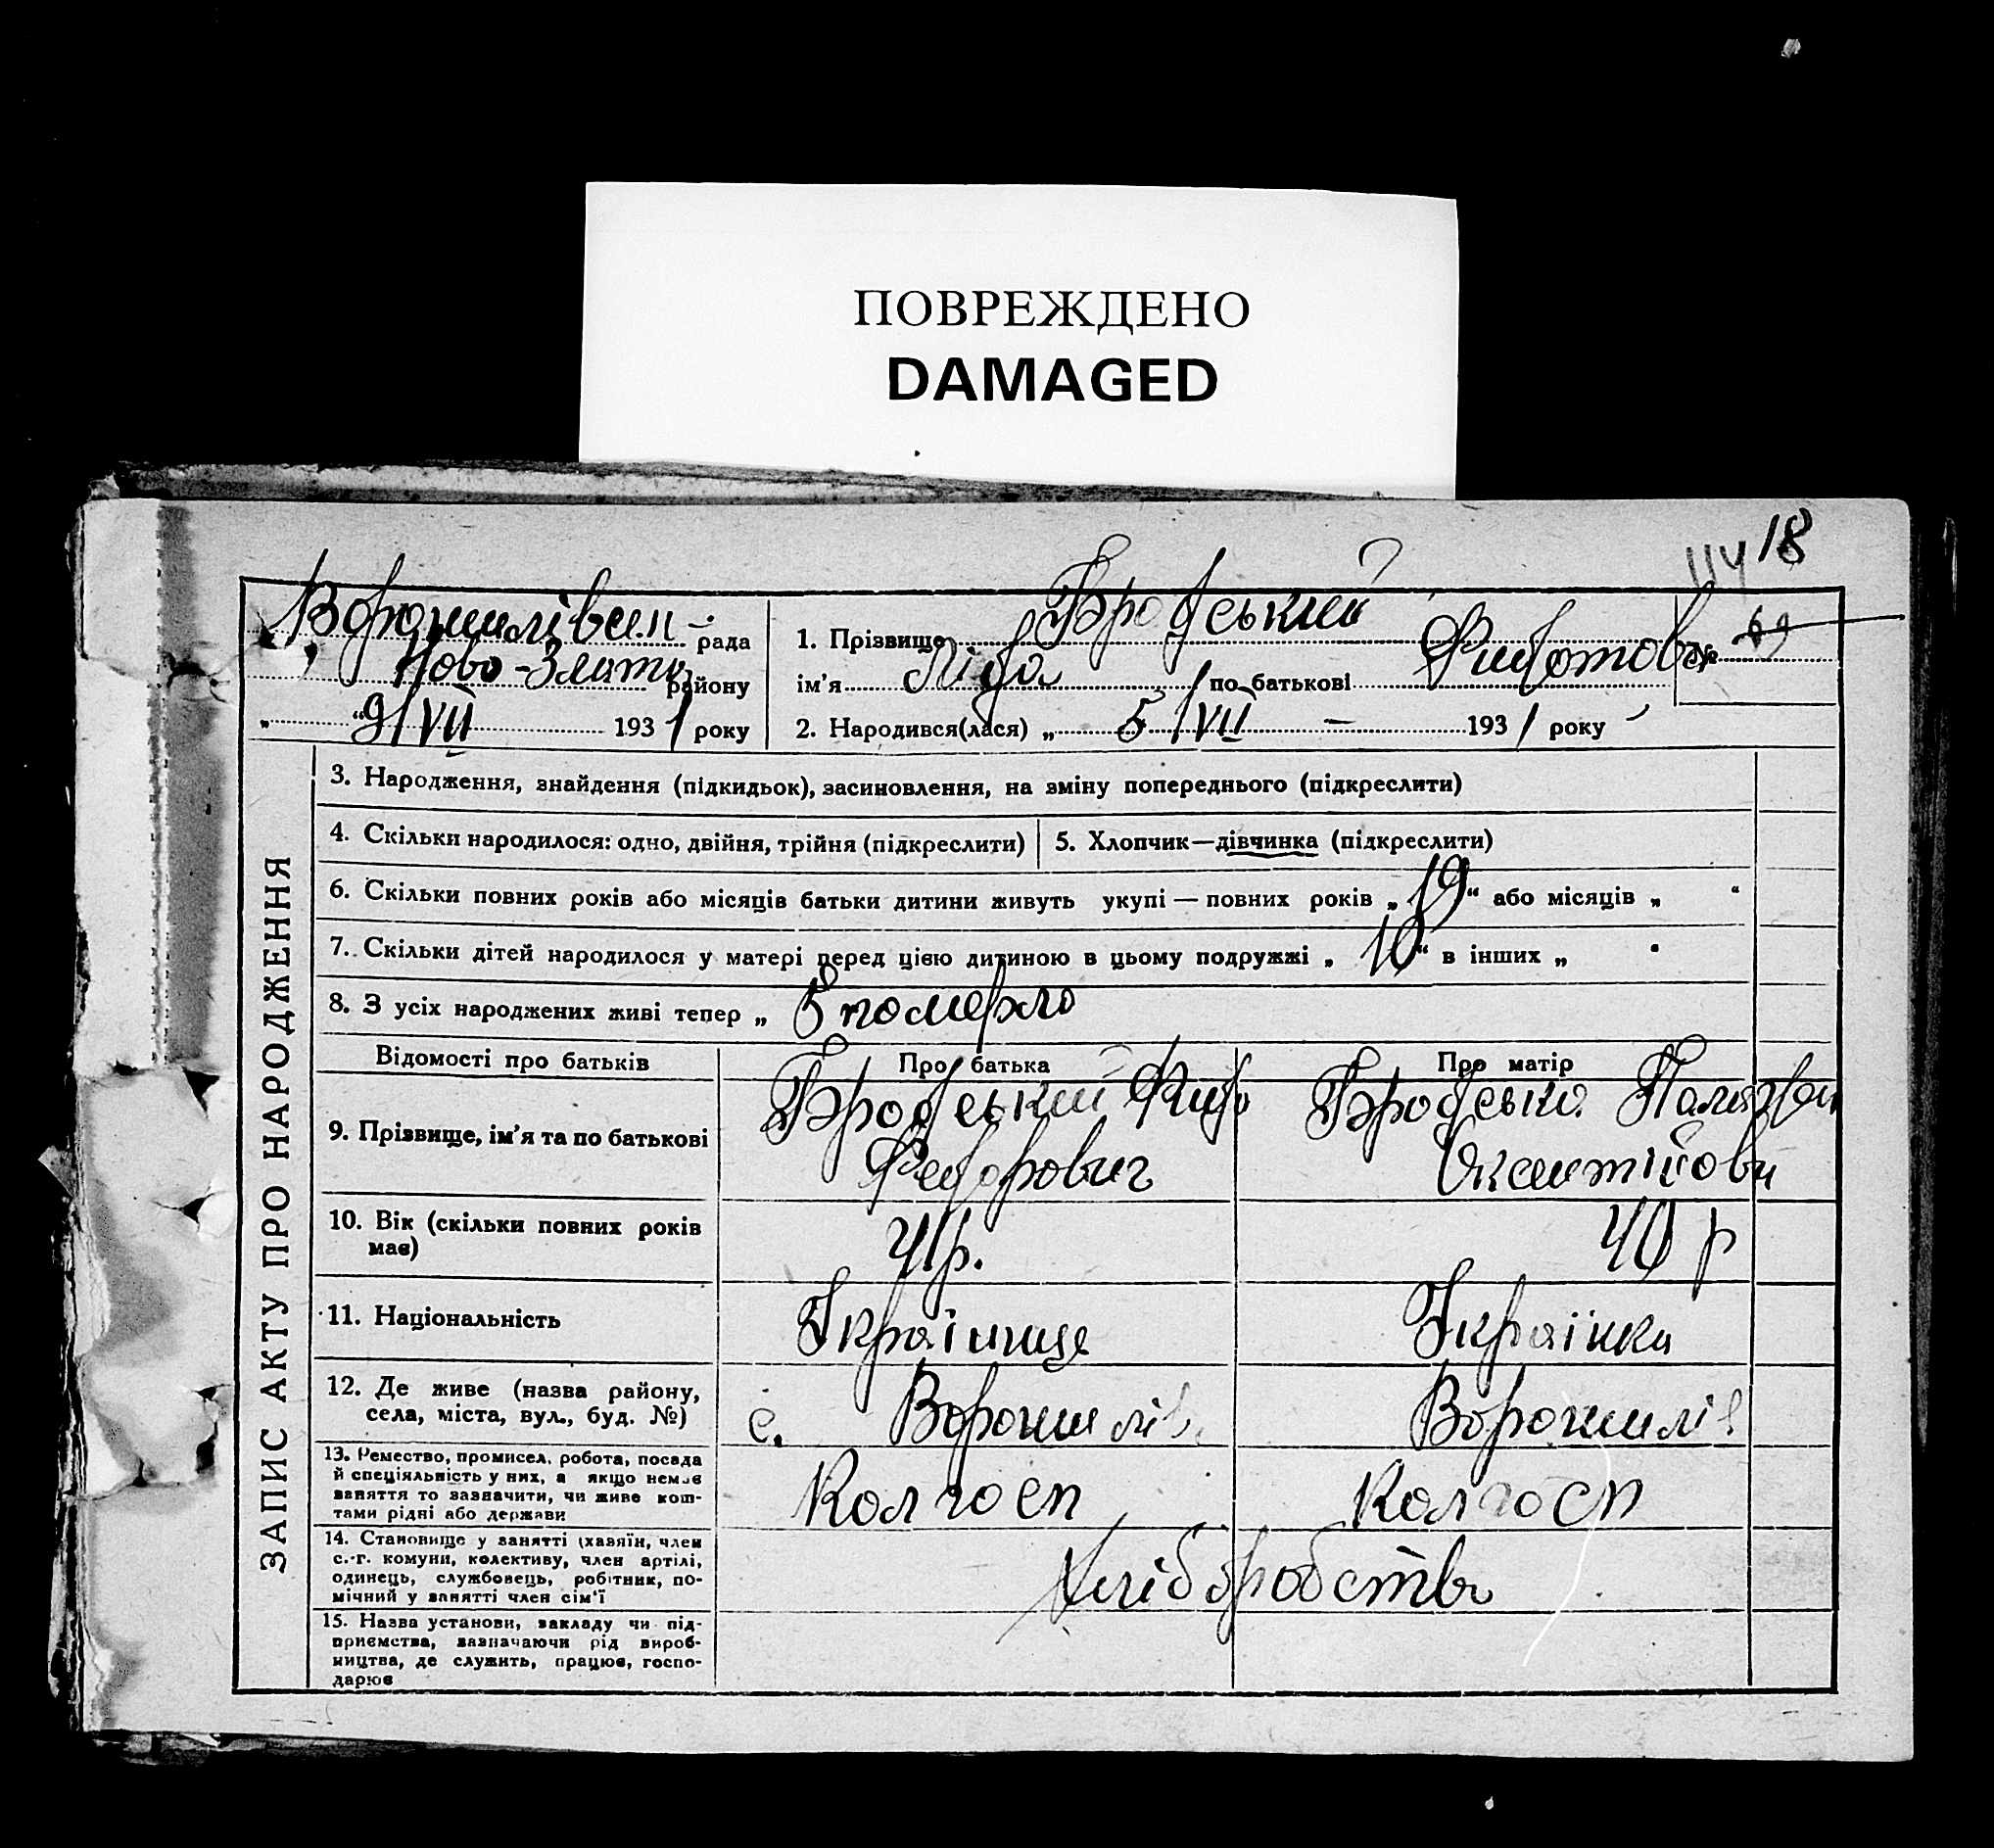 ПОВРЕЖДЕНО
DAMAGED
114 18
Ворошилівськ рада
Ново-Злато району
„ “ 9/VII 1931 року
1. Прізвище Бродський
ім'я Ліда по батькові Федотов № 69
2. Народився(лася) „ 5/VII – 1931 року
ЗАПИС АКТУ ПРО НАРОДЖЕННЯ
3. Народження, знайдення (підкидьок), засиновлення, на зміну попереднього (підкреслити)
4. Скільки народилося: одно, двійня, трійня (підкреслити)
5. Хлопчик—дівчинка (підкреслити)
6. Скільки повних років або місяців батьки дитини живуть укупі — повних років „ 19 “ або місяців „ “
7. Скільки дітей народилося у матері перед цією дитиною в цьому подружжі „ 10 “ в інших „ “
8. З усіх народжених живі тепер „ 5 померло
Відомості про батьків Про батька Про матір
9. Прізвище, ім'я та по батькові
Бродський
Федорович
Бродська
10. Вік (скільки повних років має) 41 р. 40 р
11. Національність Українець Українка
12. Де живе (назва району, села, міста, вул., буд. №) с. Ворошилів Ворошилів
13. Ремество, промисел, робота, посада й спеціяльність у них, а якщо немає заняття то зазначити, чи живе коштами рідні або держави
Колгосп Колгосп
14. Становище у занятті (хазяїн, член с.-г. комуни, колективу, член артілі, одинець, службовець, робітник, помічний у занятті член сім'ї
Хліборобство
15. Назва установи, закладу чи підприємства, зазначаючи рід виробництва, де служить, працює, господарює